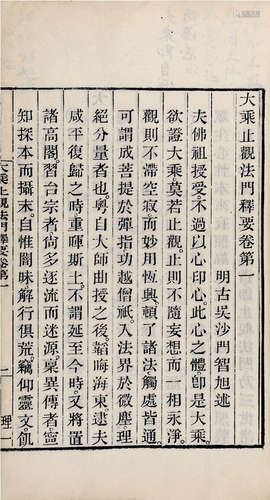 大乘止觀法門釋要卷第一
明古吳沙門智旭述
夫佛祖授受。不過以心印心。此心之體。卽是大乘。
欲證大乘。莫若止觀。止則不隨妄想。而一相永淨。
觀則不滯空寂。而妙用恆興。頓了諸法。觸處皆通。
可謂成菩提於彈指。功越僧祇。入法界於微塵。理
絕分量者也。粵自大師曲授之後。韜晦海東。逮夫
咸平復歸之時。重暉斯土。不謂延至今時。又將置
諸高閣。習台宗者。尚多逐流而迷源。稟異傳者。寧
知探本而攝末。自惟闇昧。解行俱荒。竊仰靈文。飢
大乘止觀法門釋要卷第一
二
理一